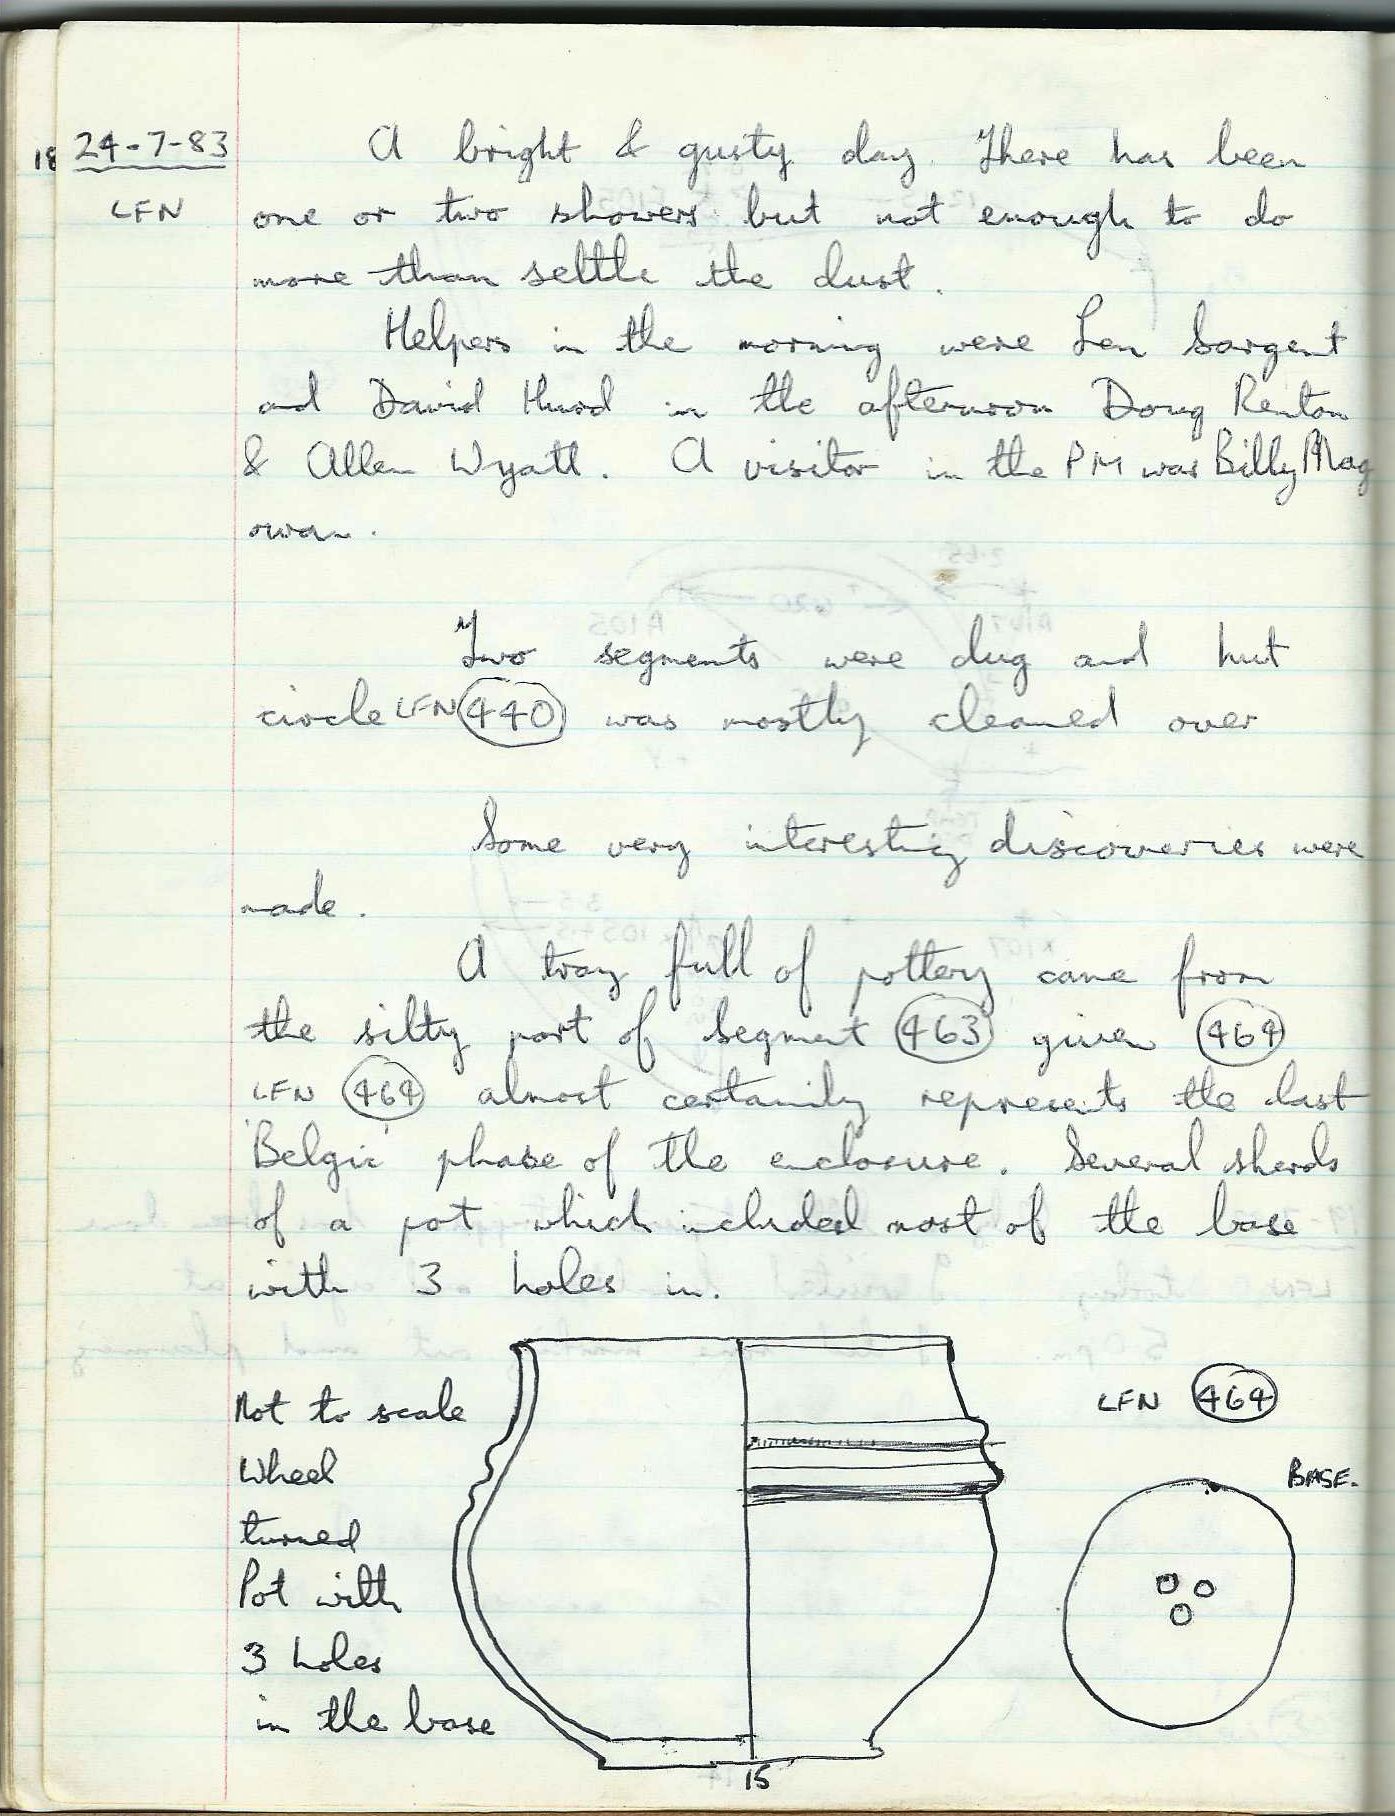 18 24-7-83 A bright & gusty day. There has been
LFN one or two showers but not enough to do
more than settle the dust.
Helpers in the morning were Len Sargent
and David Hurd in the afternoon Doug Renton
& Allen Wyatt. A visitor in the PM was Billy Mag
owan.
Two segments were dug and hut
circle LFN 440 was mostly cleaned over
Some very interesting discoveries were
made.
A tray full of pottery came from
the silty part of segment 463 given 464
LFN 464 almost certainly represents the last
'Belgic' phase of the enclosure. Several sherds
of a pot which included most of the base
with 3 holes in.
Not to scale
Wheel
turned
Pot with
3 holes
in the base
LFN 464
BASE.
15